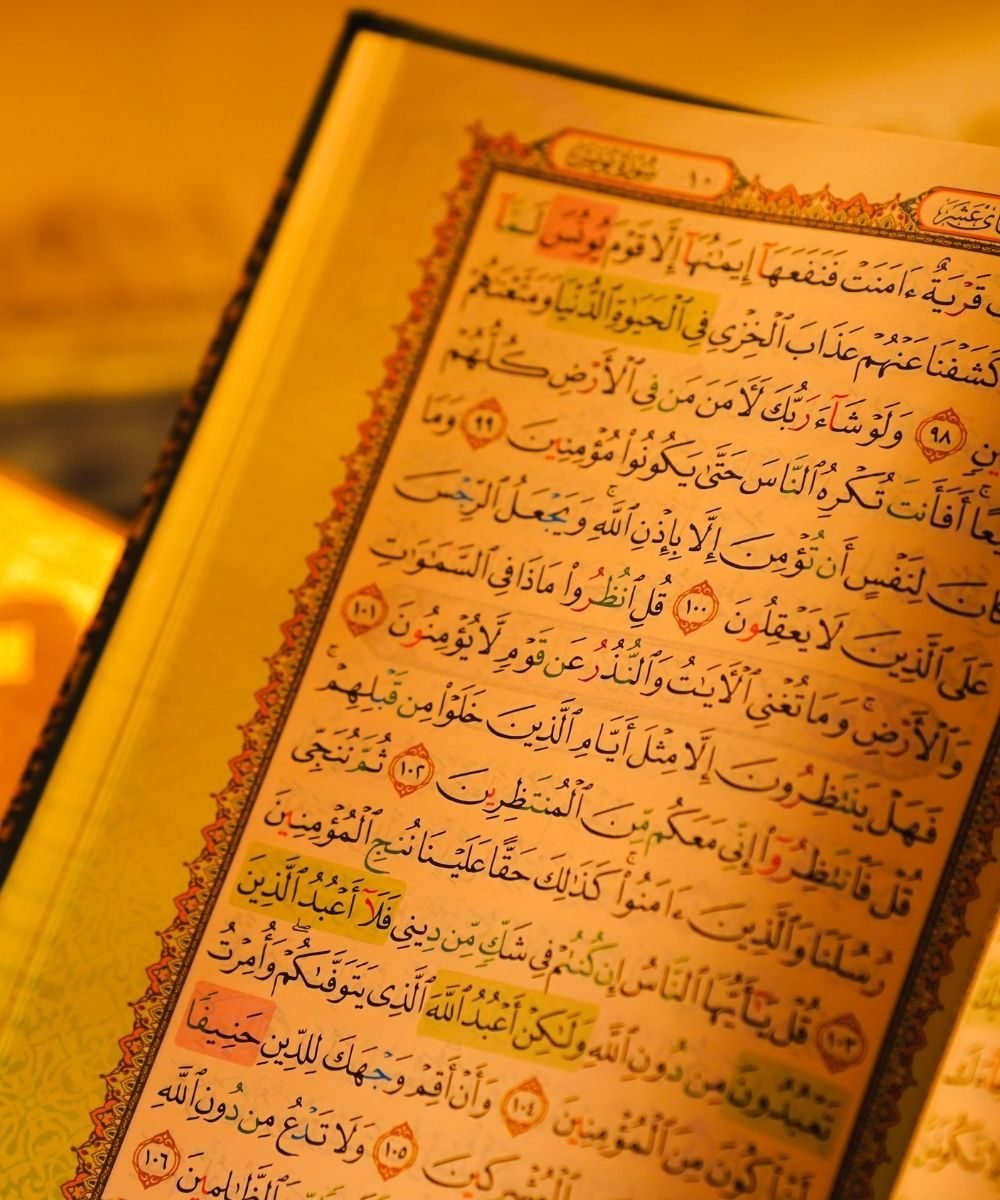 سُورَةُ يُونُسَ ١٠
قَرۡيَةٌ ءَامَنَتۡ فَنَفَعَهَآ إِيمَٰنُهَآ إِلَّا قَوۡمَ يُونُسَ لَمَّآ
كَشَفۡنَا عَنۡهُمۡ عَذَابَ ٱلۡخِزۡيِ فِي ٱلۡحَيَوٰةِ ٱلدُّنۡيَا وَمَتَّعۡنَٰهُمۡ
٩٨ وَلَوۡ شَآءَ رَبُّكَ لَأٓمَنَ مَن فِي ٱلۡأَرۡضِ كُلُّهُمۡ
أَفَأَنتَ تُكۡرِهُ ٱلنَّاسَ حَتَّىٰ يَكُونُواْ مُؤۡمِنِينَ ٩٩ وَمَا
لِنَفۡسٍ أَن تُؤۡمِنَ إِلَّا بِإِذۡنِ ٱللَّهِۚ وَيَجۡعَلُ ٱلرِّجۡسَ
عَلَى ٱلَّذِينَ لَا يَعۡقِلُونَ ١٠٠ قُلِ ٱنظُرُواْ مَاذَا فِي ٱلسَّمَٰوَٰتِ
وَٱلۡأَرۡضِۚ وَمَا تُغۡنِي ٱلۡأٓيَٰتُ وَٱلنُّذُرُ عَن قَوۡمٖ لَّا يُؤۡمِنُونَ ١٠١
فَهَلۡ يَنتَظِرُونَ إِلَّا مِثۡلَ أَيَّامِ ٱلَّذِينَ خَلَوۡاْ مِن قَبۡلِهِمۡۚ
قُلۡ فَٱنتَظِرُوٓاْ إِنِّي مَعَكُم مِّنَ ٱلۡمُنتَظِرِينَ ١٠٢ ثُمَّ نُنَجِّي
رُسُلَنَا وَٱلَّذِينَ ءَامَنُواْۚ كَذَٰلِكَ حَقًّا عَلَيۡنَا نُنجِ ٱلۡمُؤۡمِنِينَ
١٠٣ قُلۡ يَٰٓأَيُّهَا ٱلنَّاسُ إِن كُنتُمۡ فِي شَكّٖ مِّن دِينِي فَلَآ أَعۡبُدُ ٱلَّذِينَ
تَعۡبُدُونَ مِن دُونِ ٱللَّهِ وَلَٰكِنۡ أَعۡبُدُ ٱللَّهَ ٱلَّذِي يَتَوَفَّىٰكُمۡۖ وَأُمِرۡتُ
أَنۡ أَكُونَ مِنَ ٱلۡمُؤۡمِنِينَ ١٠٤ وَأَنۡ أَقِمۡ وَجۡهَكَ لِلدِّينِ حَنِيفٗا
ٱلۡمُشۡرِكِينَ ١٠٥ وَلَا تَدۡعُ مِن دُونِ ٱللَّهِ
ٱلظَّٰلِمِينَ ١٠٦